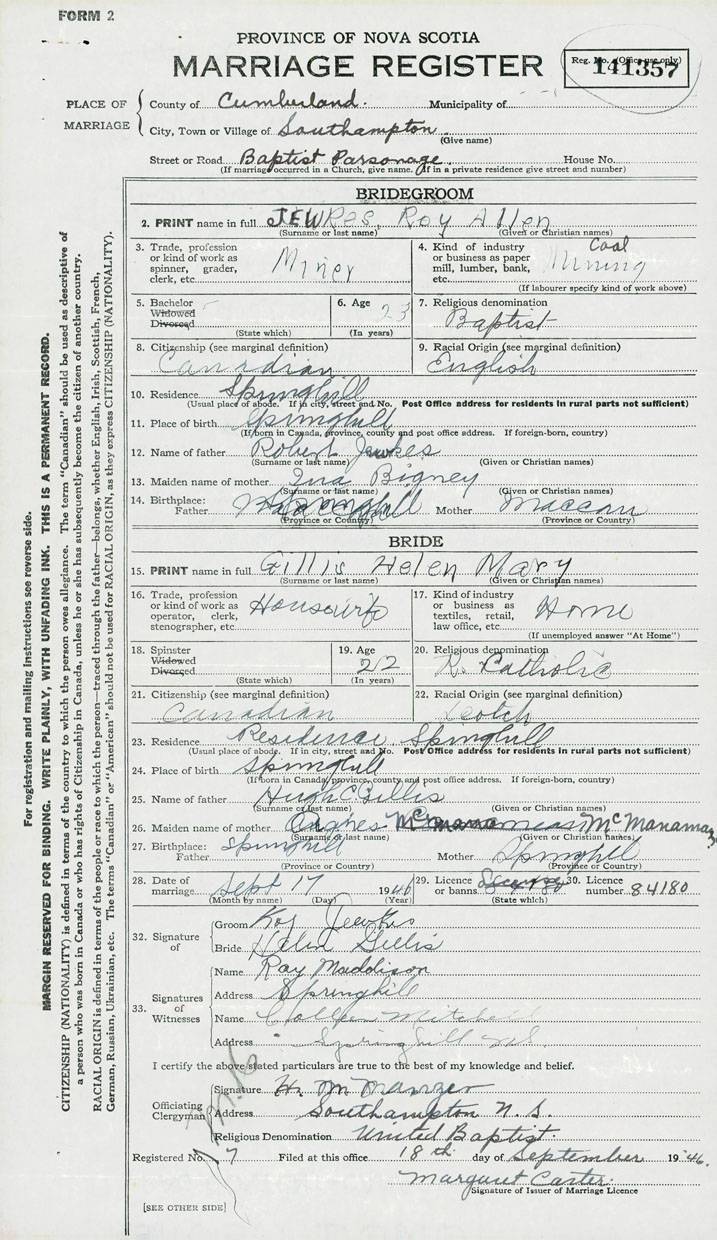 FORM 2
PROVINCE OF NOVA SCOTIA
MARRIAGE REGISTER
Reg. No. (Office use only)
141357
PLACE OF MARRIAGE
County of Cumberland. Municipality of
City, Town or Village of Southampton
(Give name)
Street or Road Baptist Parsonage. House No.
(If marriage occurred in a Church, give name. If in a private residence give street and number)
BRIDEGROOM
2. PRINT name in full JEWKES, Roy Allen
(Surname or last name) (Given or Christian names)
3. Trade, profession or kind of work as spinner, grader, clerk, etc. Miner
4. Kind of industry or business as paper mill, lumber, bank, etc. Coal Mining
(If labourer specify kind of work above)
5. Bachelor Widowed Divorced
(State which)
6. Age 23
(In years)
7. Religious denomination Baptist
8. Citizenship (see marginal definition) Canadian
9. Racial Origin (see marginal definition) English
10. Residence Springhill
(Usual place of abode. If in city, street and No. Post Office address for residents in rural parts not sufficient)
11. Place of birth Springhill
(If born in Canada, province, county and post office address. If foreign-born, country)
12. Name of father Robert Jewkes
(Surname or last name) (Given or Christian names)
13. Maiden name of mother Ina Bigney
(Surname or last name) (Given or Christian names)
14. Birthplace: Father Springhill Mother Maccan
(Province or Country) (Province or Country)
BRIDE
15. PRINT name in full Gillis Helen Mary
(Surname or last name) (Given or Christian names)
16. Trade, profession or kind of work as operator, clerk, stenographer, etc. Housewife
17. Kind of industry or business as textiles, retail, law office, etc. Home
(If unemployed answer "At Home")
18. Spinster Widowed Divorced
(State which)
19. Age 22
(In years)
20. Religious denomination R. Catholic
21. Citizenship (see marginal definition) Canadian
22. Racial Origin (see marginal definition) Scotch
23. Residence Residence Springhill
(Usual place of abode. If in city, street and No. Post Office address for residents in rural parts not sufficient)
24. Place of birth Springhill
(If born in Canada, province, county and post office address. If foreign-born, country)
25. Name of father Hugh C. Gillis
(Surname or last name) (Given or Christian names)
26. Maiden name of mother Agnes McManaman
(Surname or last name) (Given or Christian names)
27. Birthplace: Father Springhill Mother Springhill
(Province or Country) (Province or Country)
28. Date of marriage Sept 17 1946
(Month by name) (Day) (Year)
29. Licence or banns
(State which)
30. Licence number 84180
32. Signature of
Groom Roy Jewkes
Bride Helen Gillis
33. Signatures of Witnesses
Name Ray Maddison
Address Springhill
Name Colleen Mitchell
Address Springhill NS.
I certify the above stated particulars are to the best of my knowledge and belief.
Officiating Clergyman
Signature H. M. Manzer
Address Southampton N. S.
Religious Denomination United Baptist.
Registered No. 7 Filed at this office 18th day of September 1946.
Margaret Carter
Signature of Issuer of Marriage Licence
[SEE OTHER SIDE]
For registration and mailing instructions see reverse side.
MARGIN RESERVED FOR BINDING. WRITE PLAINLY, WITH UNFADING INK. THIS IS A PERMANENT RECORD.
CITIZENSHIP (NATIONALITY) is defined in terms of the country to which the person owes allegiance. The term "Canadian" should be used as descriptive of
a person who was born in Canada or who has rights of Citizenship in Canada, unless he or she has subsequently become the citizen of another country.
RACIAL ORIGIN is defined in terms of the people or race to which the person—traced through the father—belongs, whether English, Irish, Scottish, French,
German, Russian, Ukrainian, etc. The terms "Canadian" or "American" should not be used for RACIAL ORIGIN, as they express CITIZENSHIP (NATIONALITY).